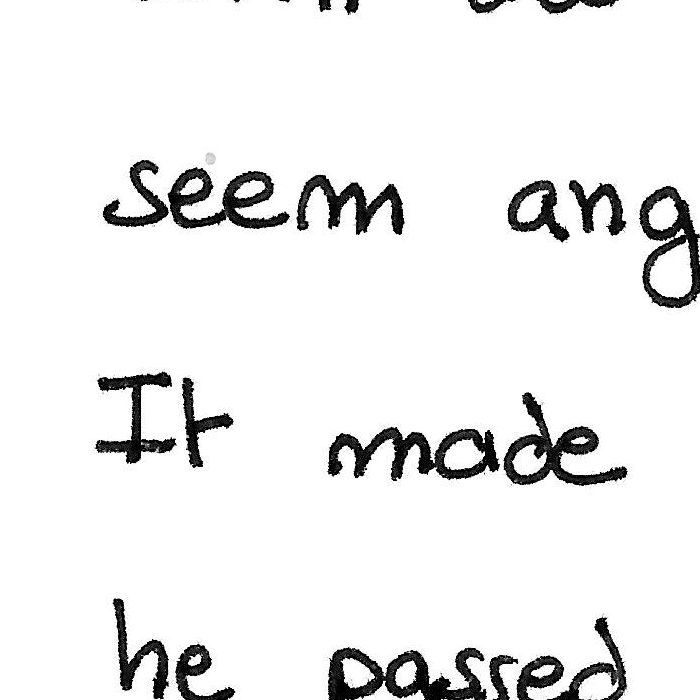 seem ang
It made
he passed